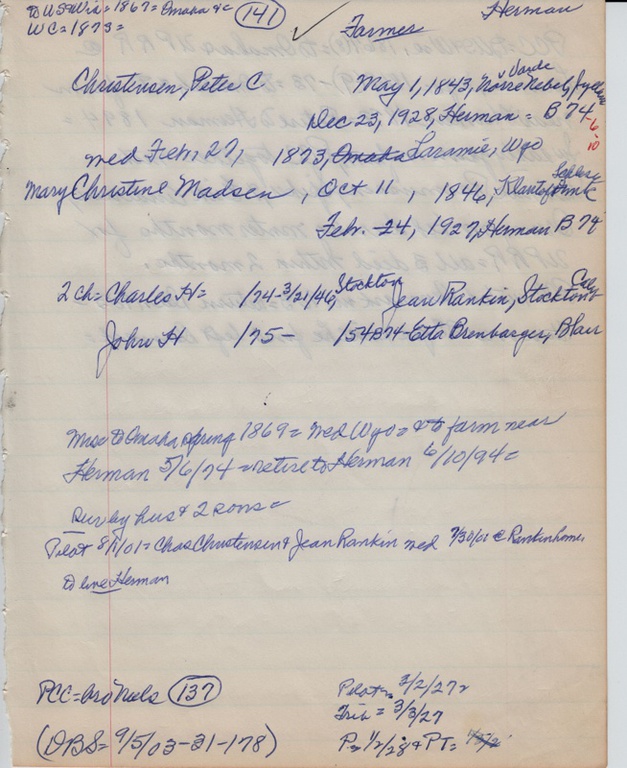 to US=Wis=1867= Omaha &c (141) Herman
WC=1873= Farmer
Christensen, Peter C May 1, 1843, Norre Nebel,
Dec 23, 1928, Herman = B 74-6-10
med Feb 27, 1873, Omaha Laramie, Wyo
Mary Christine Madsen, Oct 11, 1846,
Feb. -24, 1927, Herman B 74
2 ch = Charles H= 1/74-3/21/46, Stockton Jean Rankin, Stockton
John H 1/75- 1/54 B74 - Etta Brenbarger, Blair
Mose to Omaha spring 1869= med Wyo= & to farm near
Herman 5/6/74 = retire to Herman 6/10/94 =
Sur by hus & 2 sons=
Pilot 8/1/01= Chas Christensen & Jean Rankin med 7/30/01 @ Rankin home.
To live Herman
PCC=bro Nels (137) Pilot= 3/2/27=
Trib = 3/3/27
(DBS= 9/5/03-31-178) P= 1/2/28 & PT=